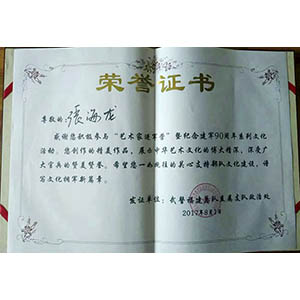 荣誉证书
尊敬的 张海龙
感谢您积极参与“艺术家进军营”暨纪念建军90周年系列文化
活动。您创作的精美作品，展示中华艺术文化的博大精深，深受广
大官兵的赞美赞誉。希望您一如既往的关心支持部队文化建设，谱
写文化拥军新篇章。
发证单位：武警福建总队直属支队政治处
2017年8月1日